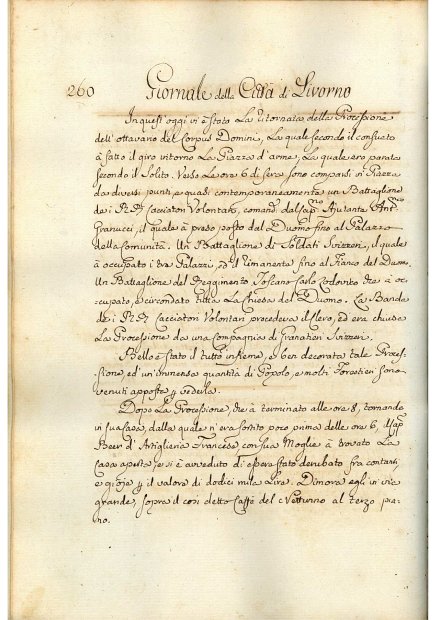 260 Giornale della Città di Livorno
In quest oggi vi è stato La ritornata della Processione
dell' ottavario del Corpus Domini, La quale secondo il consueto
à fatto il giro vitorno La Piazza d'arme, La quale era parata
secondo il solito. Verso Le ore 6 di sera sono comparsi in Piazza
da diversi punti e quasi contemporaneamente un Battaglione
de i R. R. Cacciatori Volontari, comand. dal Cap.no Ajutante Ant.
Granucci, il quale à preso posto dal Duomo fino al Palazzo
della Comunità. Un Battaglione di Soldati Svizzeri, il quale
à occupato i tre Palazzi, ed il rimanente fino al Fianco del Duomo.
Un Battaglione del Reggimento Toscano Carlo Lodovico che à oc-
cupato, e circondato tutta La Chiesa del Duomo. La Banda
de i R. R. Cacciatori Volontari procedeva il Clero, ed era chiusa
La Processione da una compagnia di Granatieri Svizzeri.
Bello è stato il tutto insieme, e ben decorata tale Proces-
sione, ed un' immensa quantità di Popolo, e molti Forestieri sono
venuti apposta p vederla.
Dopo La Processione, che à terminato alle ore 8, tornando
in sua casa, dalla quale n'era sortito poco prima delle ore 6, il Cap.
Beer d'Artiglieria Francese con sua Moglie à trovato La
Casa aperta, e si è avveduto di essere stato derubato fra contanti,
e gioje p il valore di dodici mila Lire. Dimora egli in via
grande, sopra il così detto Caffè del Vetturino al terzo pia-
no.